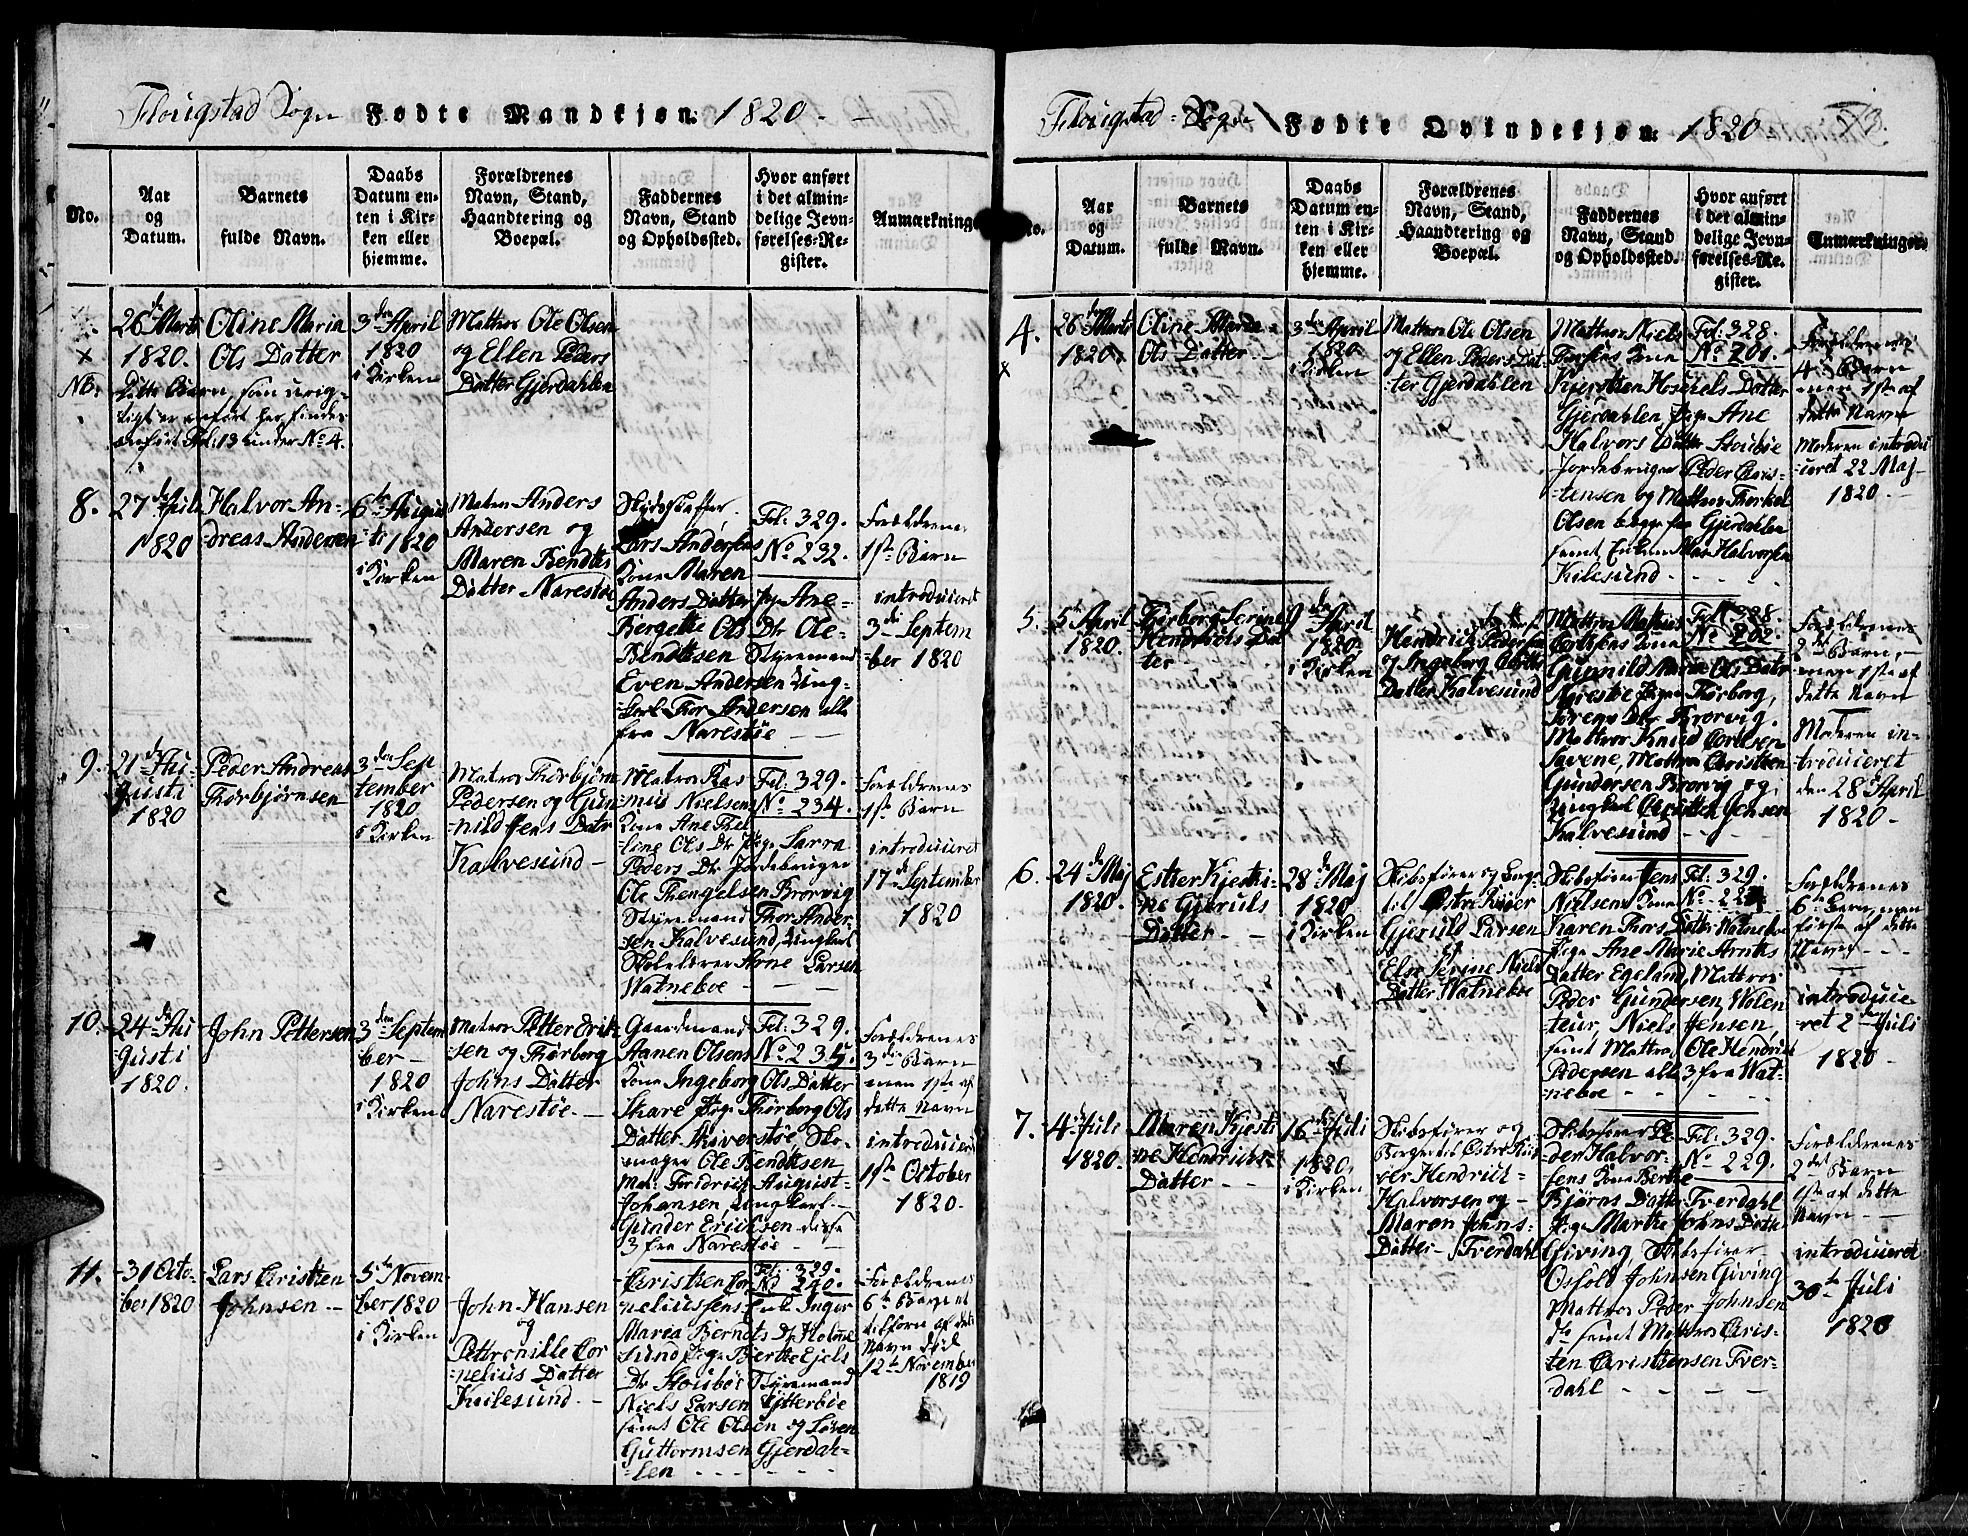 Flougstad Sogn Fødte Mandkjøn: 1820.
No.
Aar
og
Datum.
Barnets
fulde Navn.
Daabs
Datum en-
ten i Kir-
ken eller
hjemme.
Forældrenes
Navn, Stand,
Haandtering og
Boepæl.
Faddernes
Navn, Stand
og Opholdssted.
Hvor anført
i det almin-
delige Jevn-
førelses-Re-
gister.
Anmærkninger
26de Marts
1820.
NB.
Oline Maria
Ols Datter
3den April
1820
i Kirken
Mattros Ole Olsen
og Ellen Peders
Datter Gjerdahlen
Dette Barn, som urig-
tigt er anført her, findes
anført Fol: 13 under No 4.
8.
27de Juli
1820
Halvor An-
dreas Andersen
6te Augu-
sti 1820
i Kirken
Matros Anders
Andersen og
Maren Bendtes
Datter Narestøe
Skydsskaffer
Lars Andersens
Kone Maren
Anders Datter Pige Ane
Bergette Ols Dr. Ole
Bendtsen Styremand
Even Andersen Ung-
karl Thor Andersen alle
fra Narestøe
Fol: 329.
No 232.
Forældrenes
1ste Barn
introduceret
3die Septem
ber 1820
9.
21de Au-
gusti
1820
Peder Andreas
Thorbjørnsen
3den Sept
tember
1820
i Kirken
Matros Thorbjørn
Pedersen og Gun
nild Jens Datr
Kalvesund
Matros Ras
mus Nielsens
Kone Ane Thel
line Ols Dr. Pige Sarra
Peders Dr. Jordebruger
Ole Thengelsen Brorvig
Styremand Thor Ander-
sen Kalvesund, Ungkarl
Skolelærer Arne Larsen
Watneboe
Fol: 329.
No 234.
Forældrenes
1ste Barn
introduceret
17de September
1820
10.
24de Au
gusti
1820.
John Pettersen
3den Septem
ber
1820
i Kirken
Matros Petter Erik-
sen og Thorborg
Johns Datter
Narestøe.
Gaardmand
Aanen Olsens
Kone Ingeborg Ols Datter
Skare Pige Thorborg Ols
Datter Skiverstøe, Sko-
mager Ole Bendtsen
Mat: Fredrich August
Johansen, Ungkarl
Gunder Ericksen disse
3 fra Narestøe
Fol: 329.
No 235.
Forældrenes
3die Barn
men 1ste af
dette Navn
introduceret
1ste October
1820.
11.
31 Octo-
ber 1820
Lars Cristian
Johnsen
5te Novem
ber 1820
i Kirken
John Hansen
og
Petternille Cor
nelius Datter
Kilesund.
Christen Cor-
neliussens Enke Inger
Maria Bernts Dr. Holme
sund Pige Berthe Ejels
Dr. Stousbøe Styremand
Niels Larsen Ytterbøe
samt Ole Olsen og Søren
Guttormsen Gjerdah-
len
Fol: 329.
No 240.
Forældrenes
6te Barn et
tilforn af dette
Navn død
12te November
1819
Flougstad Sogn Fødte Qvindekjøn: 1820 13.
No.
Aar
og
Datum.
Barnets
fulde Navn.
Daabs
Datum en-
ten i Kir-
ken eller
hjemme.
Forældrenes
Navn, Stand,
Haandtering og
Boepæl.
Faddernes
Navn, Stand
og Opholdssted.
Hvor anført
i det almin-
delige Jevn-
førelses-Re-
gister.
Anmærkninger.
4.
26de Marts
1820.
Oline Maria
Ols Datter
3die April
1820.
i Kirken
Mattros Ole Olsen
og Ellen Peders Dat-
ter Gjerdahlen
Mattros Niels
Kone
Kjersten Datter
Gjerdahlen Pige Ane
Halvors Datter Stousbøe
Jordebruger Peder Chris-
tensen og Mattros Thorkel
Olsen begge fra Gjerdahlen
samt Halvorsen
Kilesund
Fol: 328.
No 201.
Forældrenes
4de Barn
men 1ste af
dette Navn
Moderen introdu
ceret 22 Maj
1820.
5.
5te April
1820.
Torborg Serine
Hendrichs Dat
ter
9de April
1820.
i Kirken
Hendrich Pedersen
og Ingeborg
Datter Kalvesund
Mattros Mathias
Kone
Gunnild Maria Ols Datr
Narestøe Pige Thorborg
Sørens Dr. Brorvig.
Mattros Knud
Savene, Mattros Christen
Gundersen Brorvig og
Ungkarl Jensen
Kalvesund
Fol: 328.
No 202.
Forældrenes
2det Barn,
men 1ste af
dette Navn
Moderen in-
troduceret
den 28 April
1820
6.
24de Maj
1820.
Ester Kjesti-
ne Gjeruls
Datter
28de Maj
1820
i Kirken
Skibsfører og Borg-
til Østre Riiser
Gjeruld Larsen
Else Serine Niels
Datter Watneboe
Skibsfører Jens
Nielsens Kone
Karen Thors Datter Watneboe
Pige Ane Marie Arnts
Datter Egeland, Mattros
Peder Gundersen, Wolen
teur, Niels Jensen
samt Mattros Ole Hendrick
Pedersen alle 3 fra Wat-
neboe
Fol: 329.
Forældrenes
6te Barn, men
første af dette
Navn
introduce
ret 2den Juli
1820
7.
4de Juli
1820.
Maren Kjesti
ne Hendrichs
Datter
16de Juli
1820.
i Kirken
Skibsfører og
Borger til Østre Riis
øer Hendrich
Halvorsen og
Maren Johns
Datter Tverdahl
Skibsfører Pe-
der Halvor-
sens Kone Berthe
Bjørns Datter Tverdahl
Pige Martha Johns Datter
Giving Skibsfører
Osfold Johnsen Giving
Mattros Peder Johnsen
do samt Mattros Chris-
ten Christensen Tver-
dahl
Fol: 329.
No 229.
Forældrenes
2det Barn
1ste af dette
Navn
introduceret
30te Juli
1820